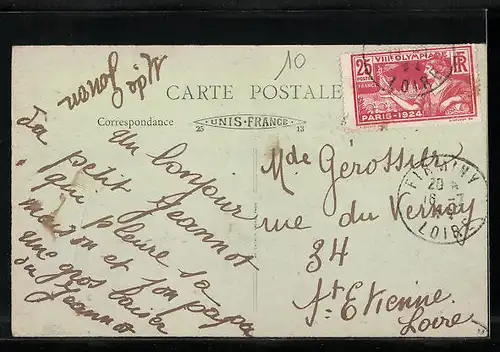 10
CARTE POSTALE
Correspondance
UNIS-FRANCE
25
13
25
VIIIe OLYMPIADE
RF
POSTES
FRANCE
PARIS-1924
LOIRE
FIRMINY
20
16 -7
LOIRE
Un bonjour
petit Jeannot
que pleure sa
maison et son papa
une gros baiser
du Jeannot
Mde Gérossier
rue du Vernay
34
St Etienne
Loire